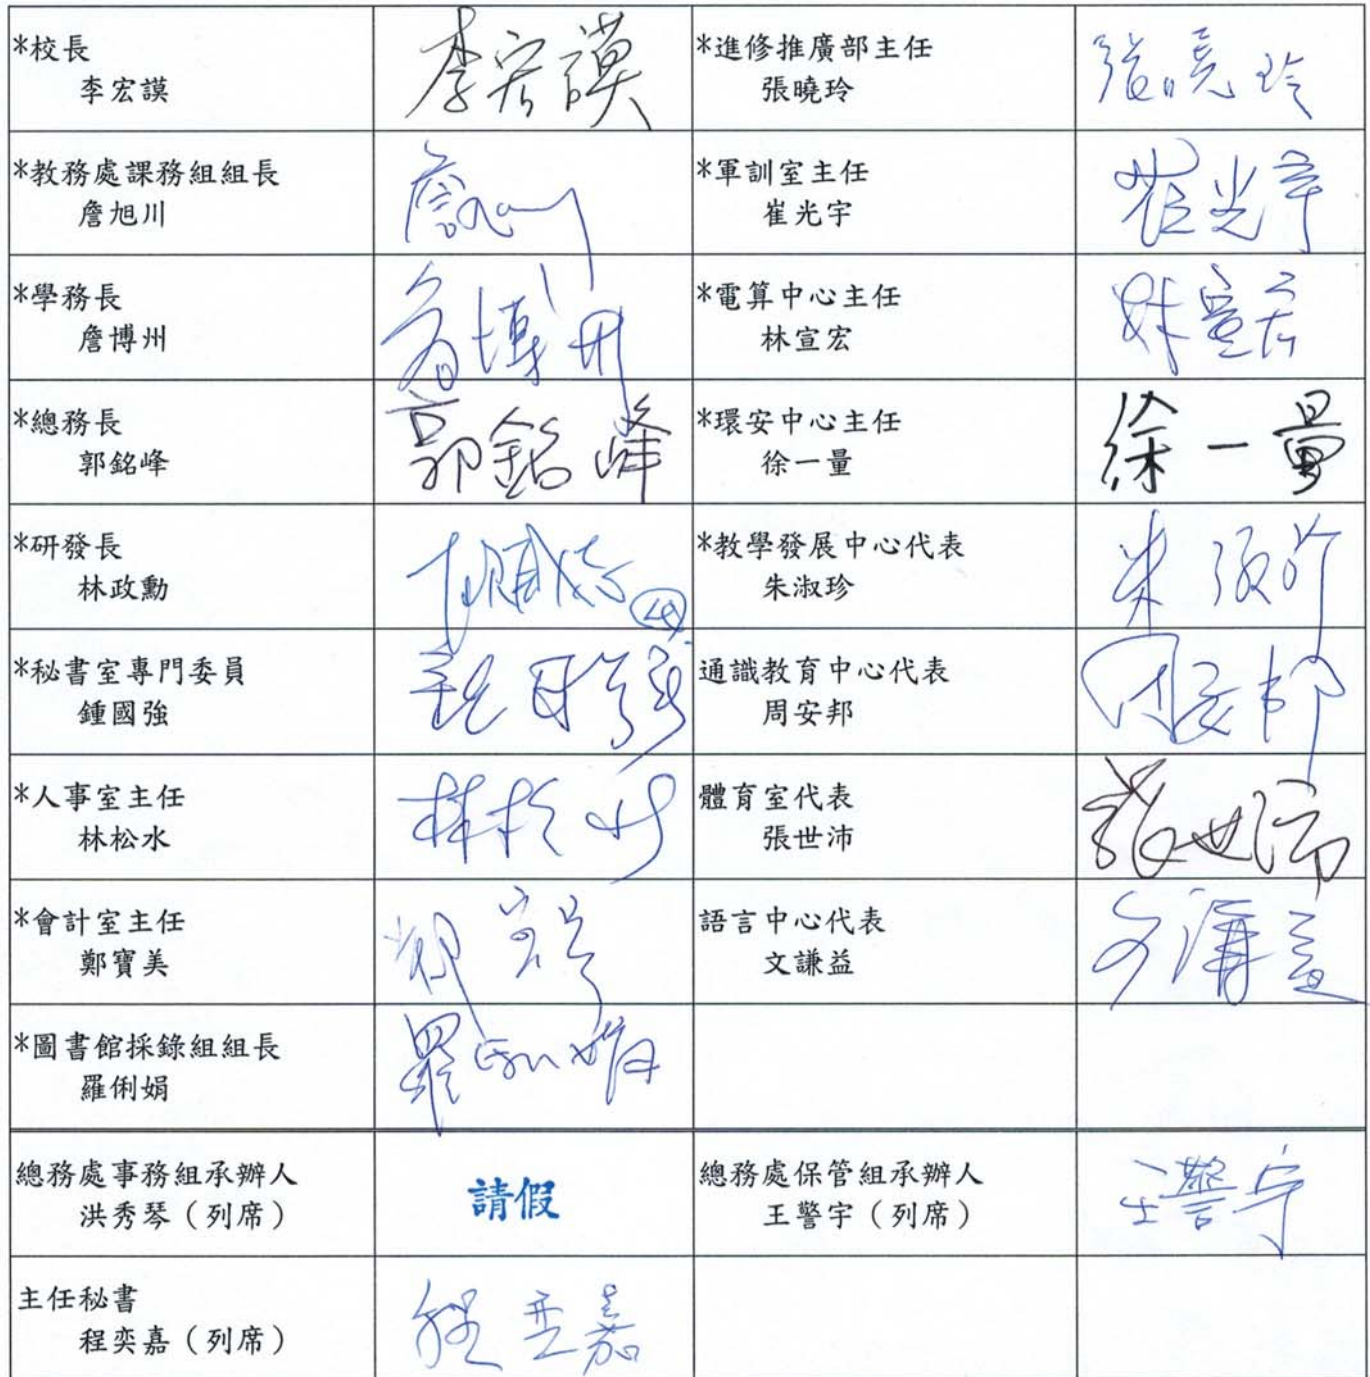 *校長
李宏謨
李宏謨
*進修推廣部主任
張曉玲
張曉玲
*教務處課務組組長
詹旭川
詹旭川
*軍訓室主任
崔光宇
崔光宇
*學務長
詹博州
詹博州
*電算中心主任
林宣宏
林宣宏
*總務長
郭銘峰
郭銘峰
*環安中心主任
徐一量
徐一量
*研發長
林政勳
*教學發展中心代表
朱淑珍
朱淑珍
*秘書室專門委員
鍾國強
鍾國強
通識教育中心代表
周安邦
周安邦
*人事室主任
林松水
林松水
體育室代表
張世沛
張世沛
*會計室主任
鄭寶美
語言中心代表
文謙益
文謙益
*圖書館採錄組組長
羅俐娟
羅俐娟
總務處事務組承辦人
洪秀琴（列席）
請假
總務處保管組承辦人
王警宇（列席）
王警宇
主任秘書
程奕嘉（列席）
程奕嘉